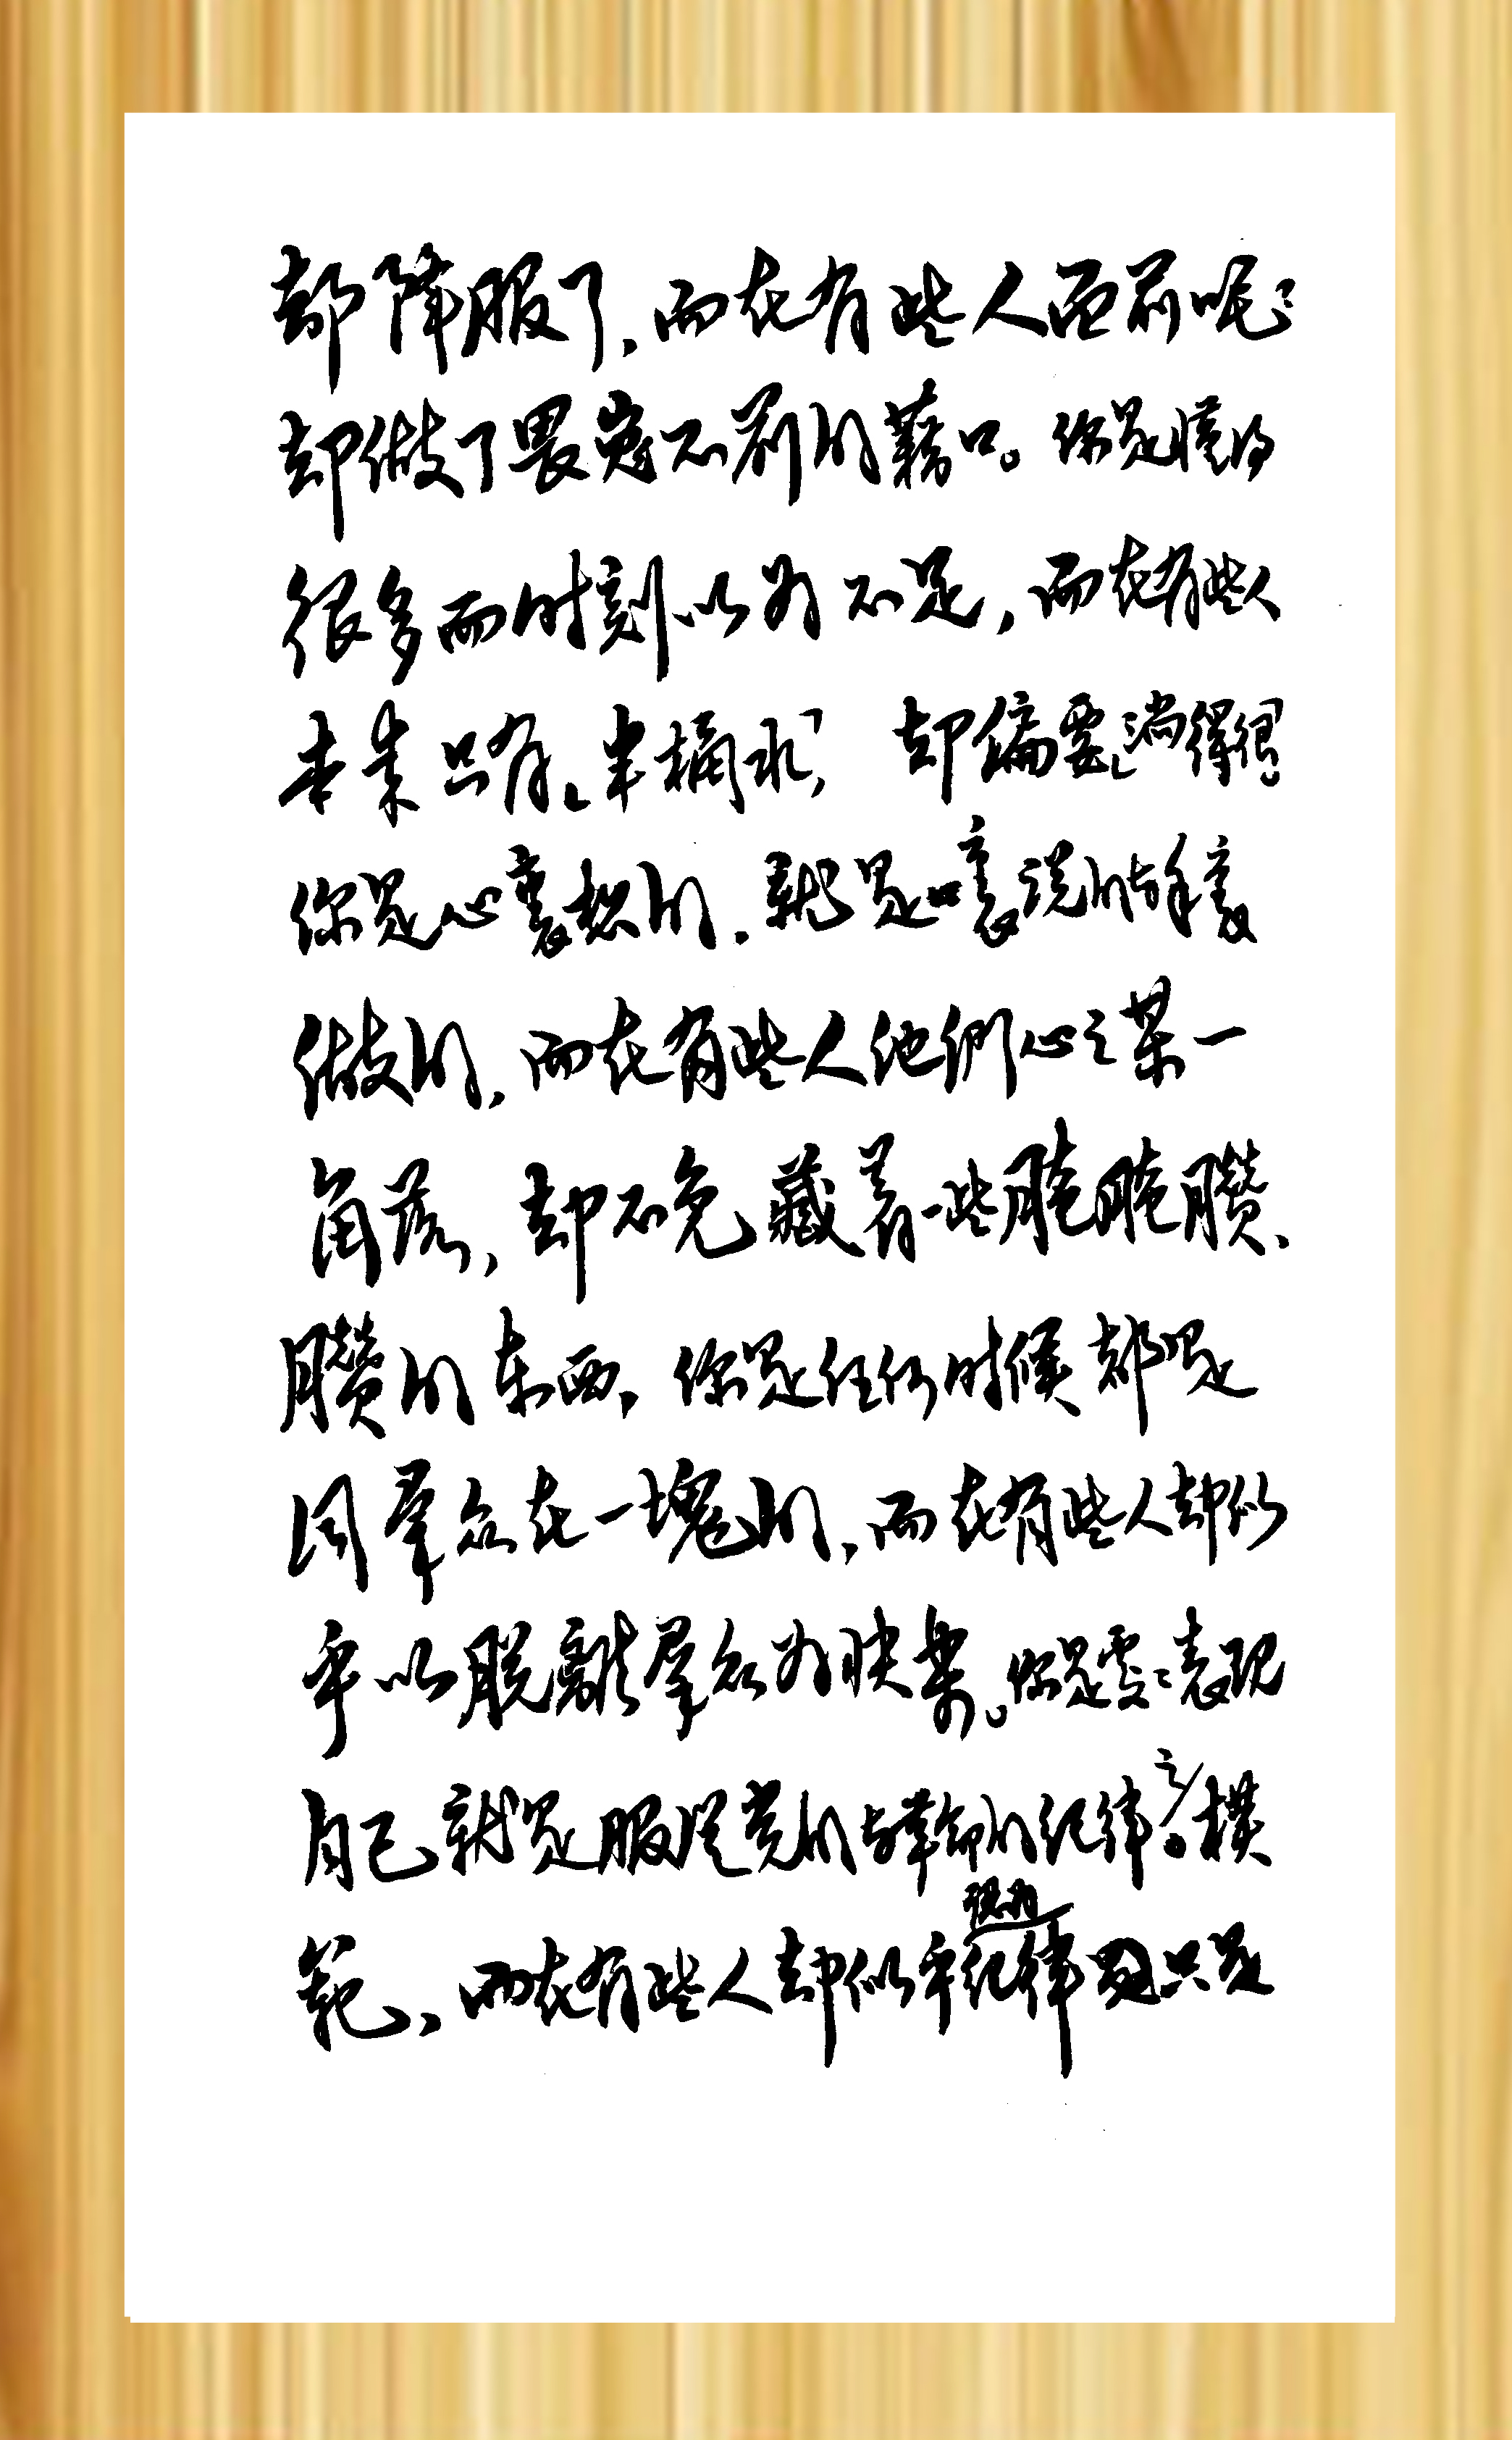 都降服了，而在有些人面前呢？
却做了畏葸不前的藉口。你是懂得
很多而时刻以为不足，而在有些人
本来只有「半桶水」，却偏要「淌得很」！
你是心裏想的，就是口裏说的与手裏
做的，而在有些人他們心之某一
角落，却不免藏着一些腌腌臢、
臢的东西，你是任何时候都是
同羣众在一塊的，而在有些人却似
乎以脱離羣众为快樂。你是處處表现
自己就是服從党的与革命的纪律之模
範，而在有些人却似乎認为纪律只是